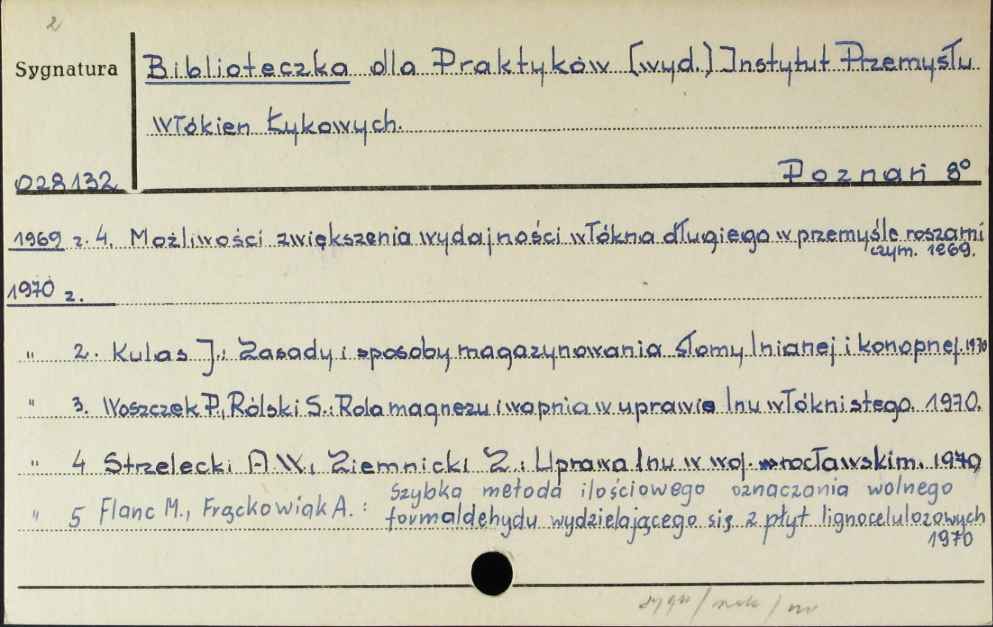 2
Sygnatura
Biblioteczka dla Praktyków [wyd.] Instytut Przemysłu
Włókien Łykowych.
028132
Poznań 8°
1969 z. 4. Możliwości zwiększenia wydajności włókna długiego w przemyśle roszarni
czym. 1969.
1970 z.
" 2. Kulas J.: Zasady i sposoby magazynowania słomy lnianej i konopnej. 1970
" 3. Woszczek P., Rólski S.: Rola magnezu i wapnia w uprawie lnu włóknistego. 1970.
" 4 Strzelecki A.W., Ziemnicki Z.: Uprawa lnu w woj. wrocławskim. 1970
" 5 Flanc M., Frąckowiak A.: Szybka metoda ilościowego oznaczania wolnego
formaldehydu wydzielającego się z płyt lignocelulozowych
1970